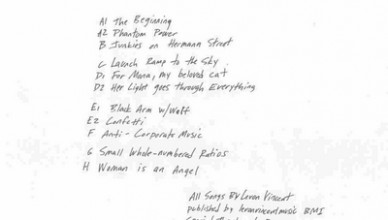 A1 The Beginning
A2 Phantom Power
B Junkies on Hermann Street
C Launch Ramp to the Sky
D1 For Mona, my beloved cat
D2 Her Light goes through Everything
E1 Black Arm w/ Wolf
E2 Confetti
F Anti-Corporate Music
G Small Whole-numbered Ratios
H Woman is an Angel
All Songs By Levon Vincent
published by levonvincentmusic BMI